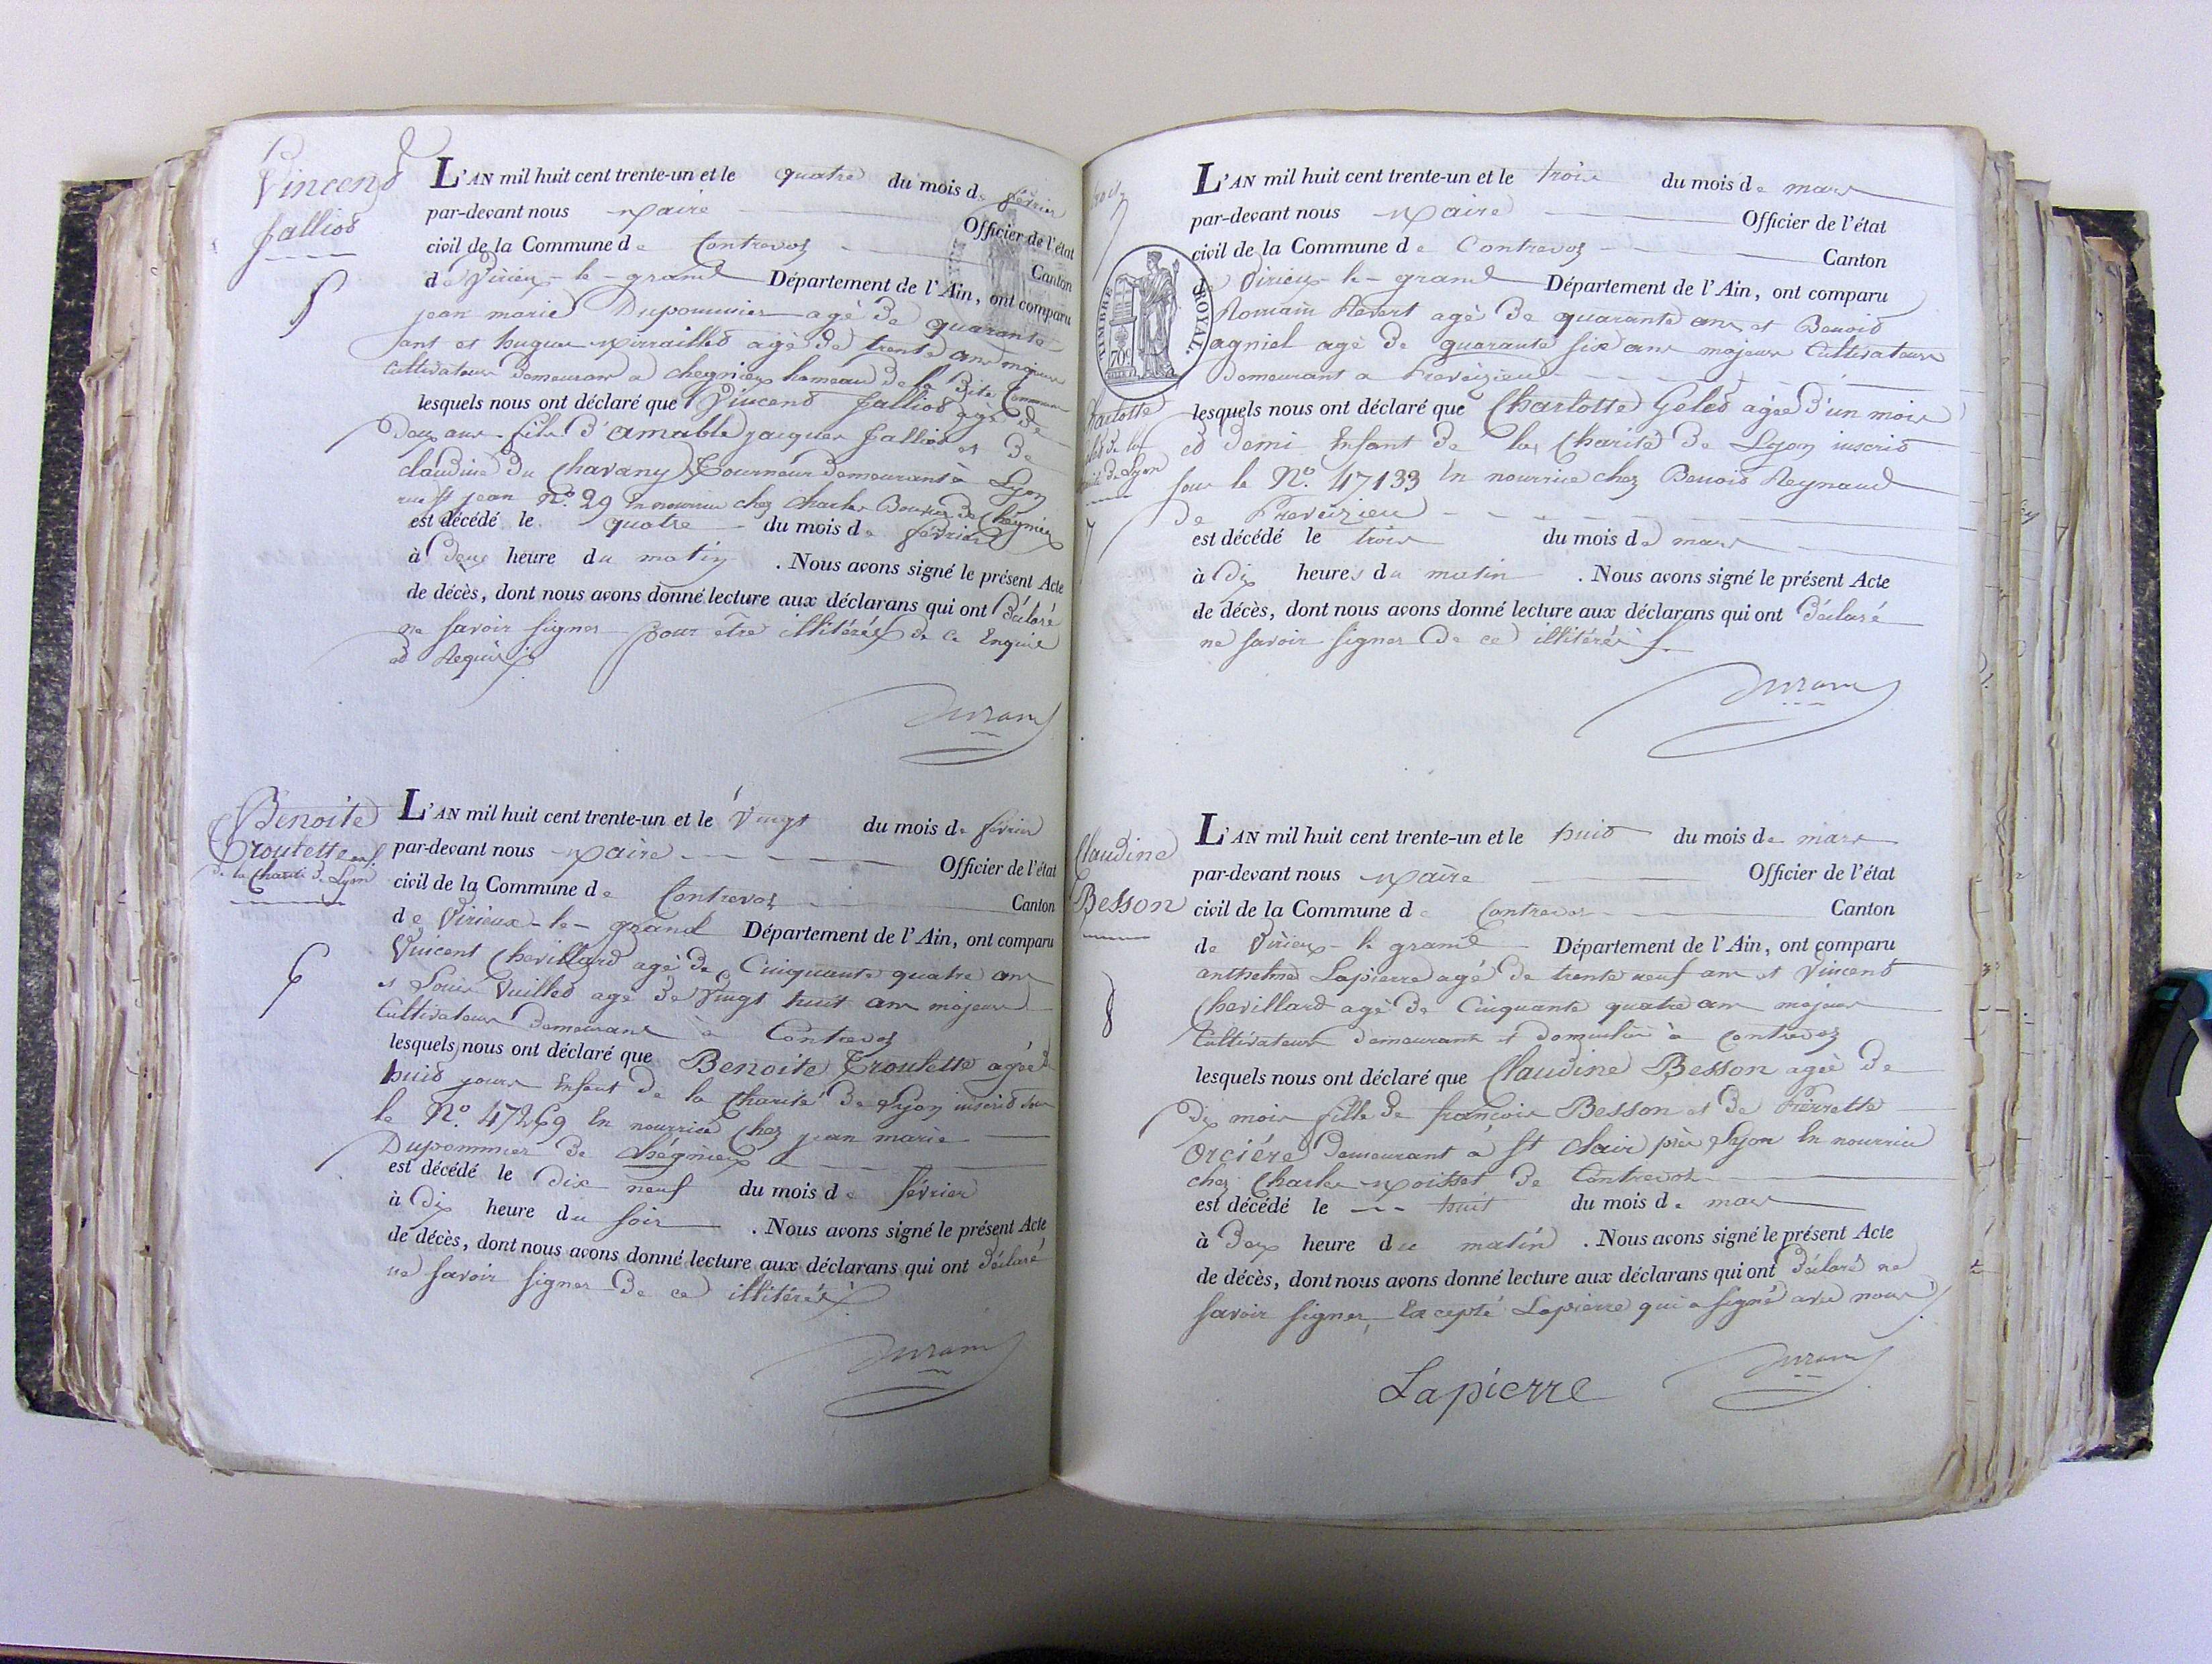 Vincend
falliod
5
L'AN mil huit cent trente-un et le quatre du mois de février
par-devant nous maire Officier de l'état
civil de la Commune de Contrevoz Canton
de Virieux-le-grand Département de l'Ain, ont comparu
jean marie Dupommier agé de quarante
sant et hugue mirailled agé de trente ans majeurs
Cultivateurs Demeurant a cheignieu hameau de la Dite Commune
lesquels nous ont déclaré que Vincend falliod agé de
Deux ans fils d'amable jacques falliod et De
claudine Du Chavany Tourneur demeurant à Lyon
rue St jean N.º 29 En nourrice chez charles de Cheignieux
est décédé le quatre du mois de février
à Deux heure du matin . Nous avons signé le présent Acte
de décès, dont nous avons donné lecture aux déclarans qui ont Déclaré
ne savoir signer pour être illitérés de ce Enquis
ed Requis
Durand
Benoite
Troutette enf.
de la Charité de Lyon
6
L'AN mil huit cent trente-un et le Vingt du mois de février
par-devant nous maire Officier de l'état
civil de la Commune de Contrevoz Canton
de Virieux-le-grand Département de l'Ain, ont comparu
Vincent Chevillard agé de Cinquante quatre ans
et Louis Vuilled agé de Vingt huit ans majeurs
Cultivateurs Demeurant à Contrevoz
lesquels nous ont déclaré que Benoite Troutette agée de
huid jours Enfant de la Charité de Lyon inscrid sous
le N.º 47269 En nourrice Chez jean marie
Dupommier de chégnieux
est décédé le dix neuf du mois de février
à Dix heure du soir . Nous avons signé le présent Acte
de décès, dont nous avons donné lecture aux déclarans qui ont Déclaré
ne savoir signer De ce illitérés
Durand
TIMBRE ROYAL.
70c
Charlotte
Geled de la
charité de Lyon
7
L'AN mil huit cent trente-un et le trois du mois de mars
par-devant nous maire Officier de l'état
civil de la Commune de Contrevoz Canton
de Virieux-le-grand Département de l'Ain, ont comparu
Romain Revert agé De quarante ans et Benoid
agniel agé De quarante six ans majeurs Cultivateurs
Demeurant a Preveizieu
lesquels nous ont déclaré que Charlotte Geled agée d'un mois
ed demi Enfant De la Charité De Lyon inscrid
sous le N.º 47133 En nourrice chez Benoid Reynaud
de Preveizieu
est décédé le trois du mois de mars
à Dix heures du matin . Nous avons signé le présent Acte
de décès, dont nous avons donné lecture aux déclarans qui ont Déclaré
ne savoir signer De ce illitérés
Durand
Claudine
Besson
8
L'AN mil huit cent trente-un et le huid du mois de mars
par-devant nous maire Officier de l'état
civil de la Commune de Contrevoz Canton
de Virieux-le grand Département de l'Ain, ont comparu
anthelme Lapierre agé De trente neuf ans et Vincend
Chevillard agé De Cinquante quatre ans majeurs
Cultivateurs demeurant et domicilié à Contrevoz
lesquels nous ont déclaré que Claudine Besson agée De
Dix mois fille De françois Besson et De Pierrette
Orciére Demeurant à St clair près Lyon En nourrice
chez Charles moisset De Contrevoz
est décédé le huit du mois de mars
à Deux heure du matin . Nous avons signé le présent Acte
de décès, dont nous avons donné lecture aux déclarans qui ont Déclaré ne
savoir signer, Excepté Lapierre qui a signé avec nous
Lapierre Durand